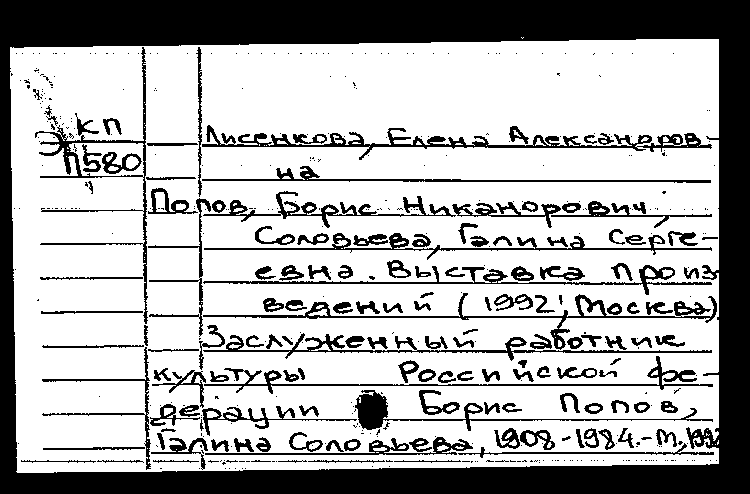 КП
П580
Лисенкова, Елена Александров-
на
Попов, Борис Никанорович,
Соловьева, Галина Серге-
евна. Выставка произ
ведений (1992; Москва)
Заслуженный работник
культуры Российской Фе-
дерации Борис Попов,
Галина Соловьева, 1908-1984.-М., 1992